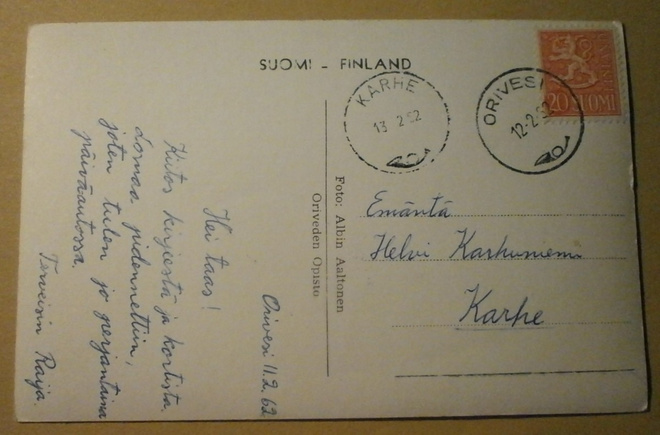 SUOMI - FINLAND
KARHE
13 2 62
ORIVESI
12.2.62
20 SUOMI
Foto: Albin Aaltonen
Oriveden Opisto
Orivesi 11.2.62
Hei taas!
Kiitos kirjeestä ja kortista.
Lomaa pidennettiin,
joten tulen jo perjantaina
päiväautossa.
Terveisin Raija.
Emäntä
Helvi Karhuniemi
Karhe